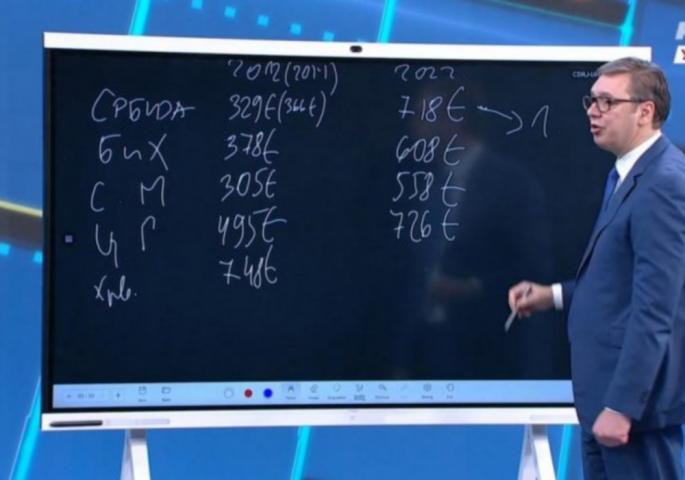 2012(2011) 2022
СРБИЈА 329€(366€) 718€ → 1
БиХ 378€ 608€
С. М 305€ 558€
Ц Г 495€ 726€
Хрв. 748€